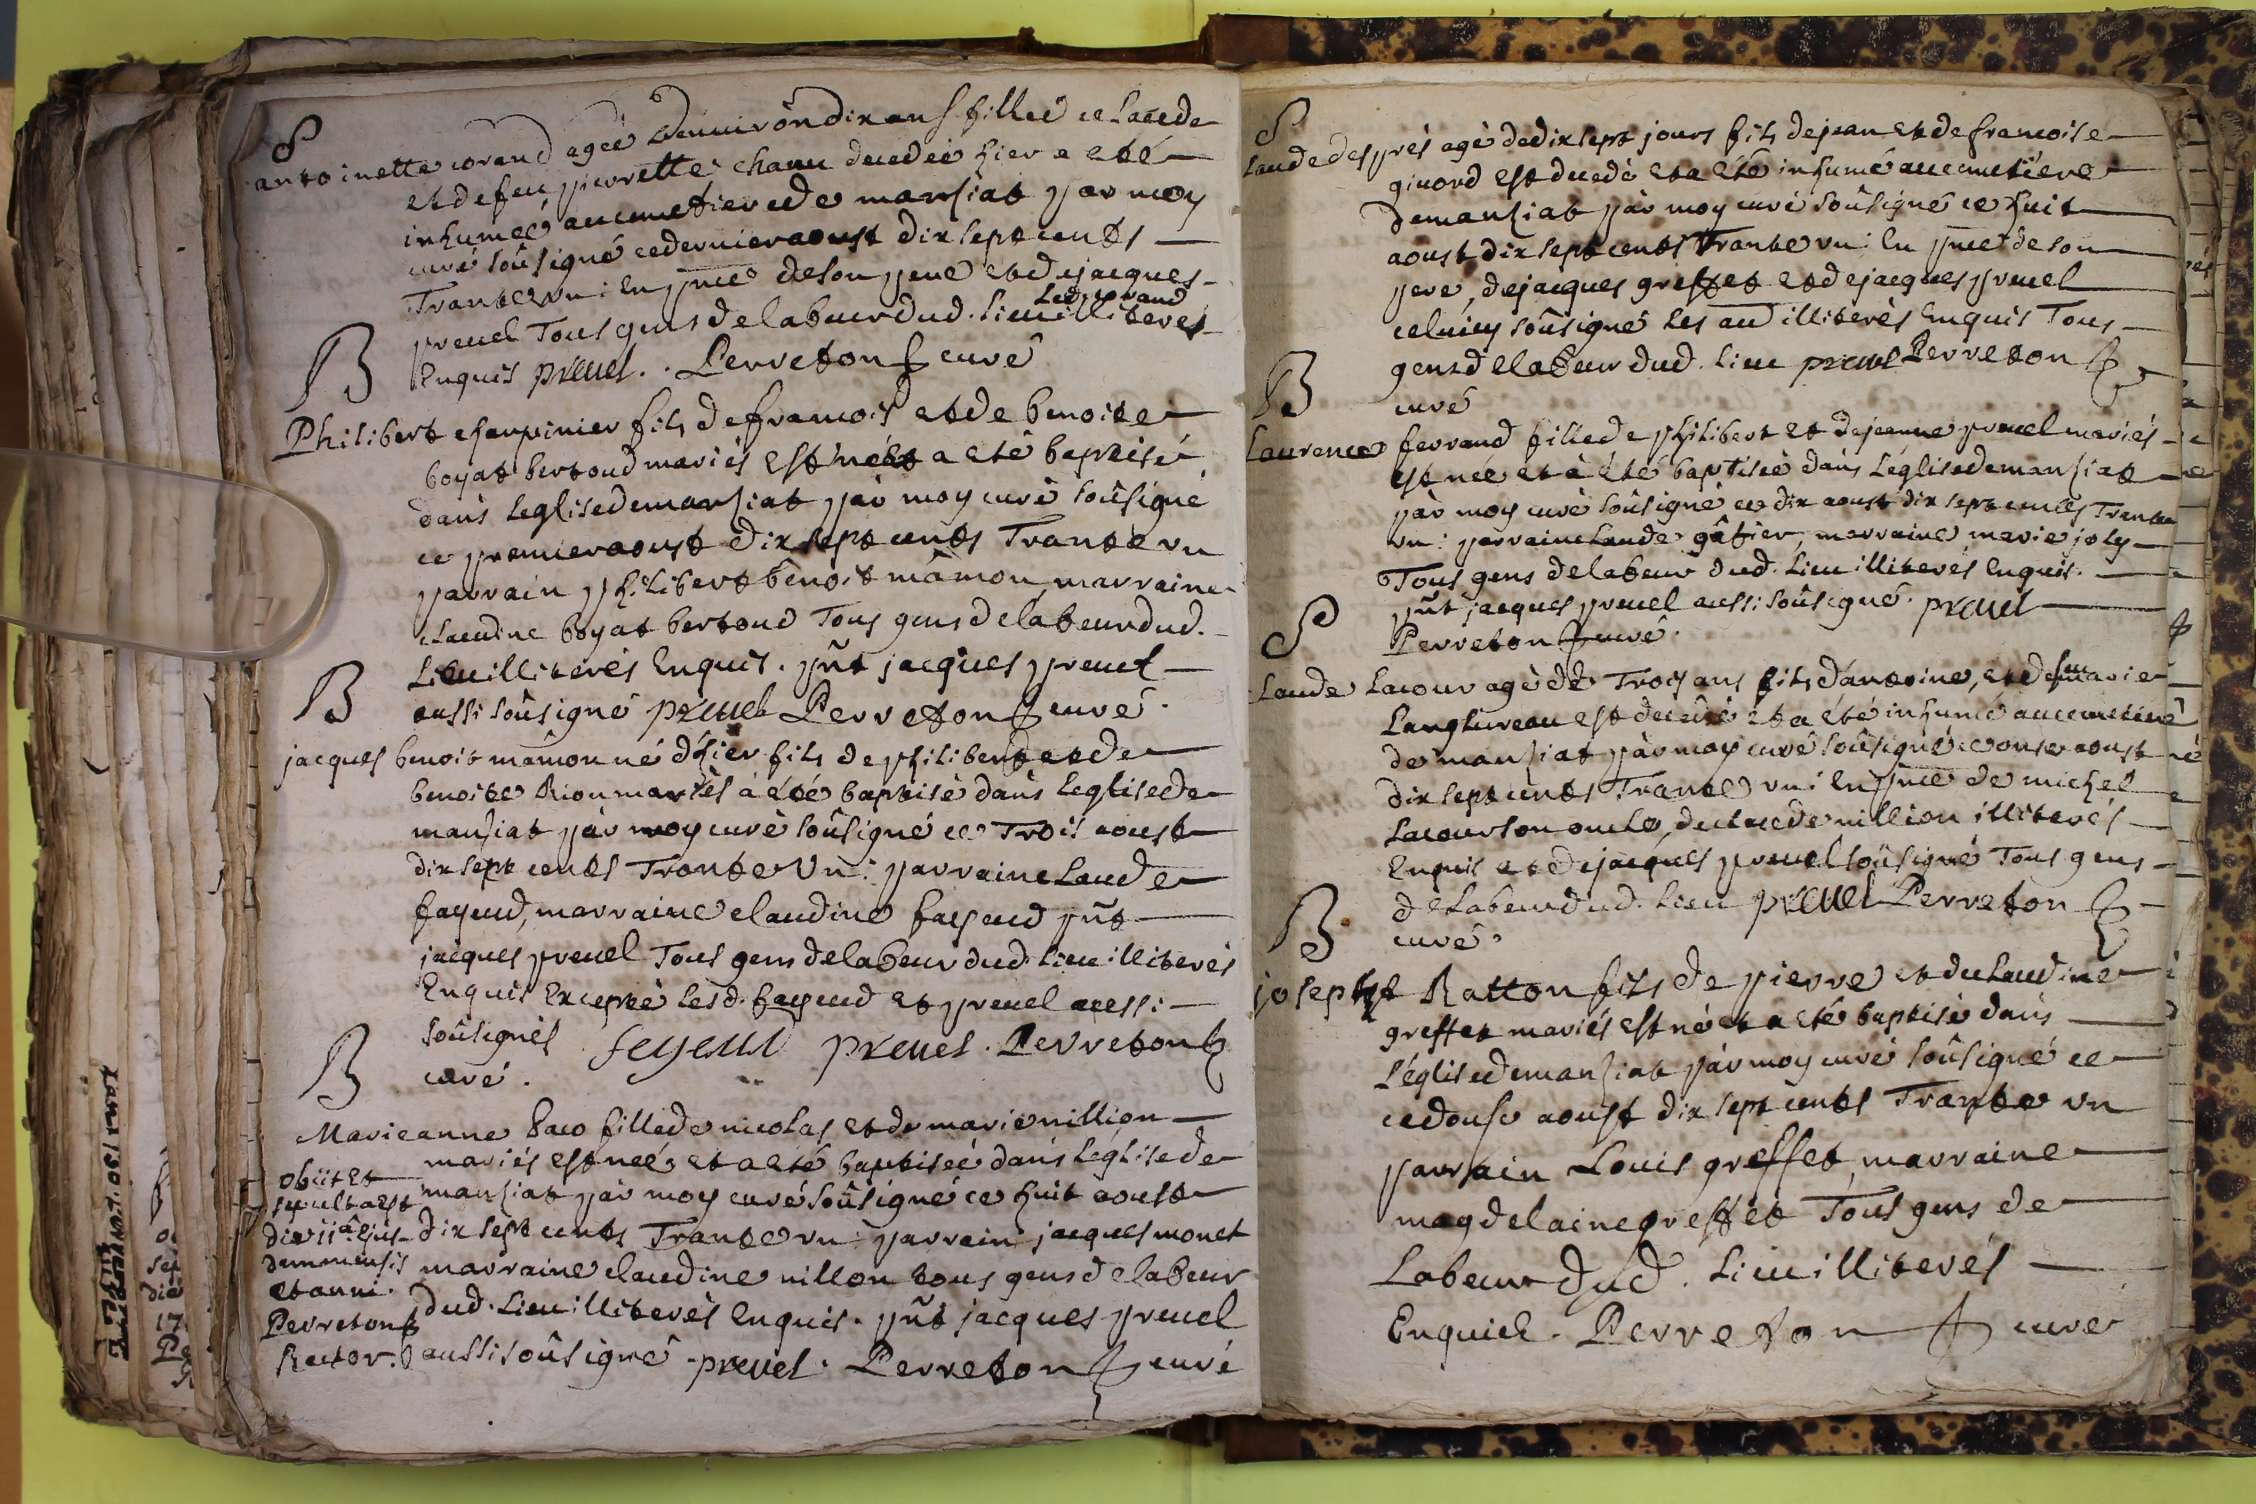 S
antoinette corand agée denviron dix ans fille de claude
et de feu pierrette chanu decedée hier a eté
inhumée au cimetiere de manziat par moy
curé soûsigné ce dernier aoust dix sept cents
Trante vn : En pnce de son pere et de jacques
preuel Tous gens de labeur dud. lieu illiterés
Enquis preuel . Perreton curé
B
Philibert charpinier fils de francois et de benoite
boyat bertoud mariés est né et a eté baptisé
dans leglise de manziat par moy curé soûsigné
ce premier aoust dix sept cents Trante vn
parrain philibert benoit mâmon, marraine
claudine boyat bertoud Tous gens de labeur dud.
Lieu illiterés Enquis . pñt jacques preuel
aussi soûsigné preuel Perreton curé .
B
jacques benoit mâmon né d'hier fils de philibert et de
benoite Rion mariés a été baptisé dans leglise de
manziat par moy curé soûsigné ce Trois aoust
dix sept cents Trante Vn : parrain claude
fayeud, marraine claudine fayeud pñt
jacques preuel Tous gens de labeur dud. lieu illiterés
Enquis Excepté lesd. fayeud et preuel aussi
soûsignés feyeud preuel . Perreton
curé .
B
Marie anne fille de nicolas et de marie nillion
mariés est née, et a eté baptisée dans léglise de
manziat par moy curé soûsigné ce huit aoust
dix sept cents Trante vn : parrain jacques monet
marraine claudine nillon tous gens de labeur
dud. Lieu illiterés Enquis . pñt jacques preuel
aussi soûsigné - preuel . Perreton curé
obiit et
sepulta est
die 11â ejus-
dem mensis
et anni .
Perreton
Rector .
S
laude desprès agé de dix sept jours fils de jean et de francoise
giuord est decedé et a eté inhumé au cimetiere
de manziat par moy curé soûsigné ce huit
aoust dix sept cents Trante vn : En pnce de son
pere, de jacques greffet et de jacques preuel
celuicy soûsigné les au illiterés Enquis Tous
gens de labeur dud. lieu preuel Perreton
curé
B
Laurence ferrand fille de philibert et de jeanne preuel mariés
est née et à été baptisée dans L'église de manziat
par moy curé soûsigné ce dix aoust dix sept cents Trante
vn : parrain claude gâtier, marraine marie joly
Tous gens de labeur dud. Lieu illiterés Enquis .
pñt jacques preuel aussi soûsigné . preuel
Perreton curé .
S
laude Lacour agé de Trois ans fils d'antoine, et de feu marie
Langlureau est decedé et a été inhumé au cimetiere
de manziat par moy curé soûsigné ce onze aoust
dix sept cents Trante vn : En pnce de michel
Lacour son oncle, de claude nillion illiterés
Enquis et de jacques preuel soûsigné Tous gens
de Labeur dud. Lieu preuel Perreton
curé .
B
joseph Ratton fils de pierre et de claudine
greffet mariés est né et a eté baptisé dans
L'église de manziat par moy curé soûsigné ce
ce douse aoust dix sept cents Trante vn
parrain Louis greffet, marraine
magdelaine greffet Tous gens de
Labeur dud . Lieu illiterés
Enquis . Perreton curé